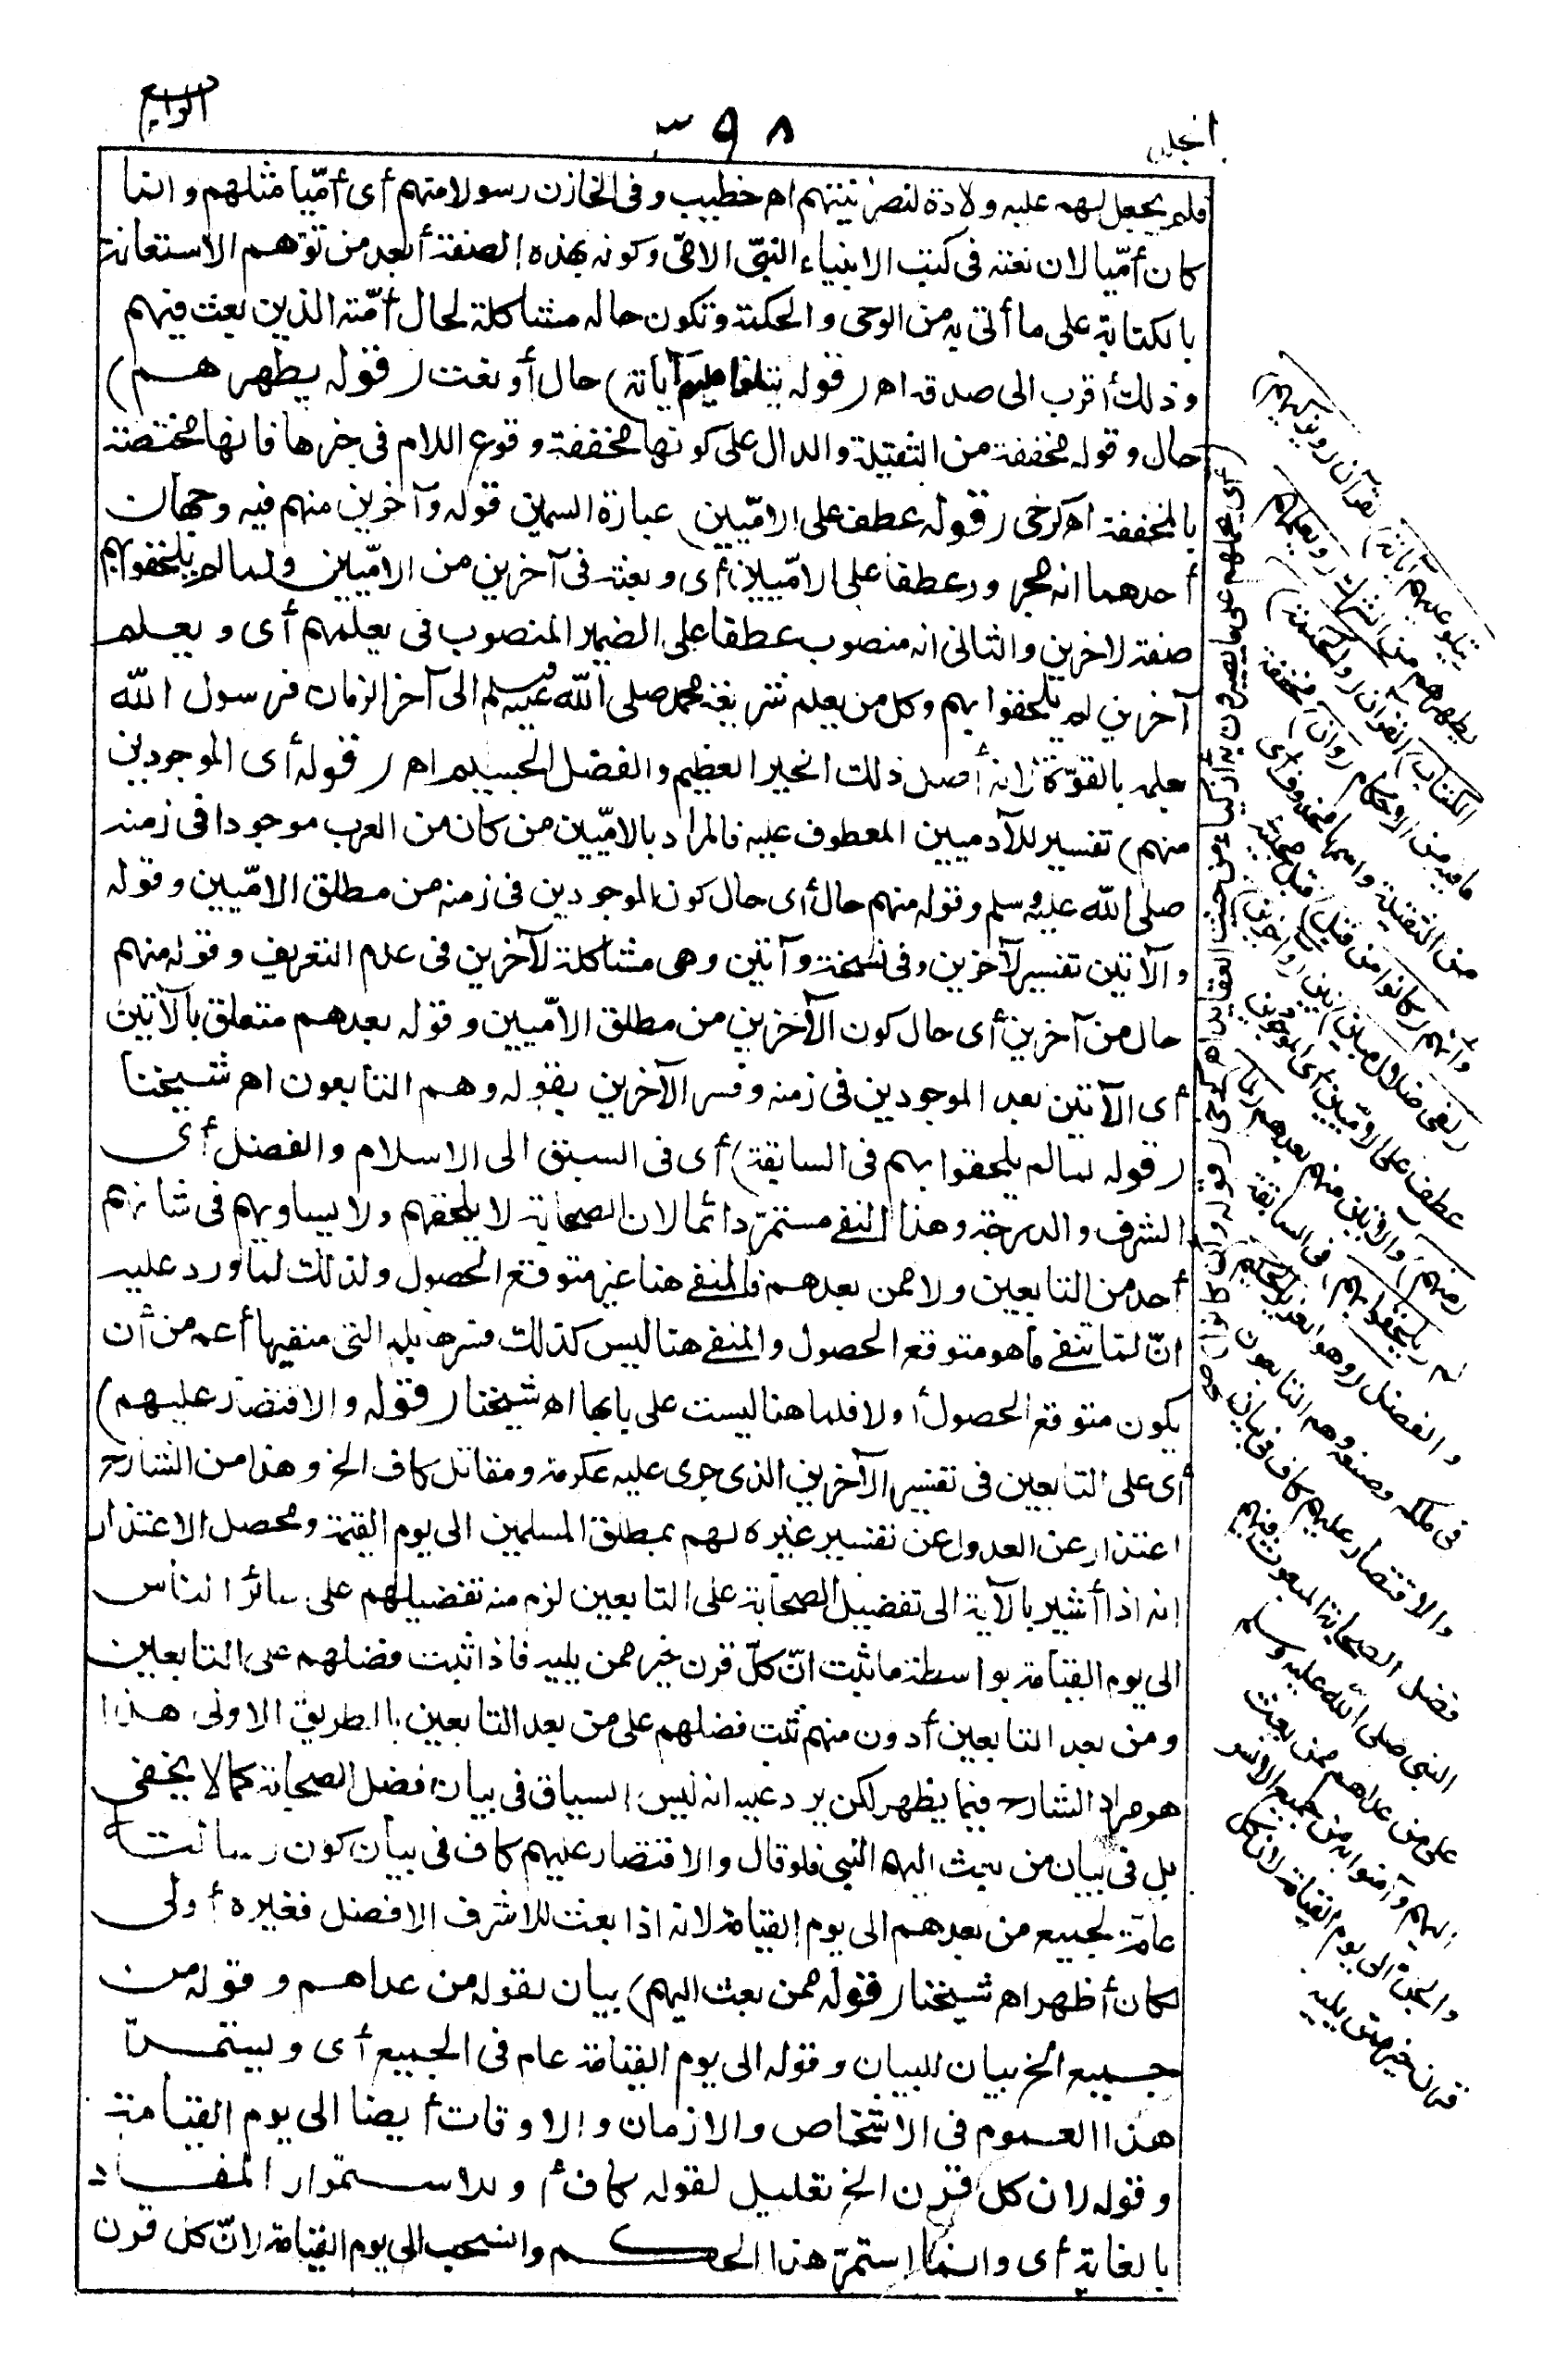 الرابع
٣٩٨
الجلد
فلم يجعل لهم عليه ولادة لنصرنيتهم اه خطيب وفى الخازن رسولا منهم أى أمّيا مثلهم وانما
كان أمّيا لان نعته فى كتب الانبياء النبىّ الامىّ وكونه بهذه الصفة أبعد من توّهم الاستعانة
بالكتابة على ما أتى به من الوحى والحكمة وتكون حاله مشاكلة لحال أمّته الذين بعث فيهم
وذلك أقرب الى صدقه اه (قوله يتلوا عليهم آياته) حال أو نعت (قوله يطهرهم)
حال وقوله مخففة من الثقيلة والدال على كونها مخففة وقوع اللام فى خبرها فانها مختصة
بالمخففة اه كرخى (قوله عطف على الامّيين) عبارة السمين قوله وآخرين منهم فيه وجهان
أحدهما انه مجرور عطفا على الامّيين أى وبعثه فى آخرين من الامّيين ولما لم يلحقوا بهم
صفة لاخرين والثانى انه منصوب عطفا على الضمير المنصوب فى يعلمهم أى ويعلم
آخرين لم يلحقوا بهم وكل من يعلم شريعة محمد صلى الله عليه وسلم الى آخر الزمان فرسول الله
معلمه بالقوّة لانه أصل ذلك الخير العظيم والفضل الجسيم اه (قوله أى الموجودين
منهم) تفسير للآدميين المعطوف عليه فالمراد بالامّيين من كان من العرب موجودا فى زمنه
صلى الله عليه وسلم وقوله منهم حال أى حال كون الموجودين فى زمنه من مطلق الامّيين وقوله
والآتين تفسير لآخرين وفى نسخة وآتين وهى مشاكلة لآخرين فى عدم التعريف وقوله منهم
حال من آخرين أى حال كون الآخرين من مطلق الامّيين وقوله بعدهم متعلق بالآتين
أى الآتين بعد الموجودين فى زمنه وفسر الآخرين بقوله وهم التابعون اه شيخنا
(قوله لما لم يلحقوا بهم فى السابقة) أى فى السبق الى الاسلام والفضل أى
الشرف والدرجة وهذا النفى مستمرّ دائما لان الصحابة لا يلحقهم ولا يساويهم فى شانهم
أحد من التابعين ولا ممن بعدهم فالمنفى هنا غير متوقع الحصول ولذلك لما ورد عليه
انّ لما تنفى ما هو متوقع الحصول والمنفى هنا ليس كذلك فسرها بلم التى منفيها أعم من أن
يكون متوقع الحصول أولا فلما هنا ليست على بابها اه شيخنا (قوله والاقتصار عليهم)
أى على التابعين فى تفسير الآخرين الذى جرى عليه عكرمة ومقاتل كاف الخ وهذا من الشارح
اعتذار عن العدول عن تفسير غيره لهم بمطلق المسلمين الى يوم القيمة ومحصل الاعتذار
انه اذا أشير بالآية الى تفضيل الصحابة على التابعين لزم منه تفضيلهم على سائر الناس
الى يوم القيامة بواسطة ما ثبت انّ كلّ قرن خير ممن يليه فاذا ثبت فضلهم على التابعين
ومن بعد التابعين أدون منهم ثبت فضلهم على من بعد التابعين بالطريق الاولى هذا
هو مراد الشارح فيما يظهر لكن يرد عليه انه ليس السياق فى بيان فضل الصحابة كما لا يخفى
بل فى بيان من بعث اليهم النبى فلو قال والاقتصار عليهم كاف فى بيان كون رسالته
عامّة لجميع من بعدهم الى يوم القيامة لانه اذا بعث للاشرف الافضل فغيره أولى
لكان أظهر اه شيخنا (قوله ممن بعث اليهم) بيان لقوله من عداهم وقوله من
جميع الخ بيان للبيان وقوله الى يوم القيامة عام فى الجميع أى ويستمرّ
هذا العموم فى الاشخاص والازمان والاوقات أيضا الى يوم القيامة
وقوله لان كل قرن الخ تعليل لقوله كاف أو للاستمرار المفاد
بالغاية أى وانما استمرّ هذا الحكم وانسحب الى يوم القيامة لانّ كل قرن
يتلو عليهم آياته) القرآن (ويزكيهم)
يطهرهم من الشرك (ويعلمهم
الكتاب) القرآن (والحكمة)
ما فيه من الاحكام (وان) مخففة
من الثقيلة واسمها محذوف أى
وانهم (كانوا من قبل) قبل مجيئه
(لفى ضلال مبين) بين (وآخرين)
عطف على الامّيين أى الموجودين
(منهم) والآتين منهم بعدهم (لما)
لم (يلحقوا بهم) فى السابقة
والفضل (وهو العزيز الحكيم)
فى ملكه وصنعه وهم التابعون
والاقتصار عليهم كاف فى بيان
فضل الصحابة المبعوث فيهم
النبى صلى الله عليه وسلم
على من عداهم ممن بعث
اليهم وآمنوا به من جميع الانس
والجنّ الى يوم القيامة لان كل
قرن خير ممن يليه